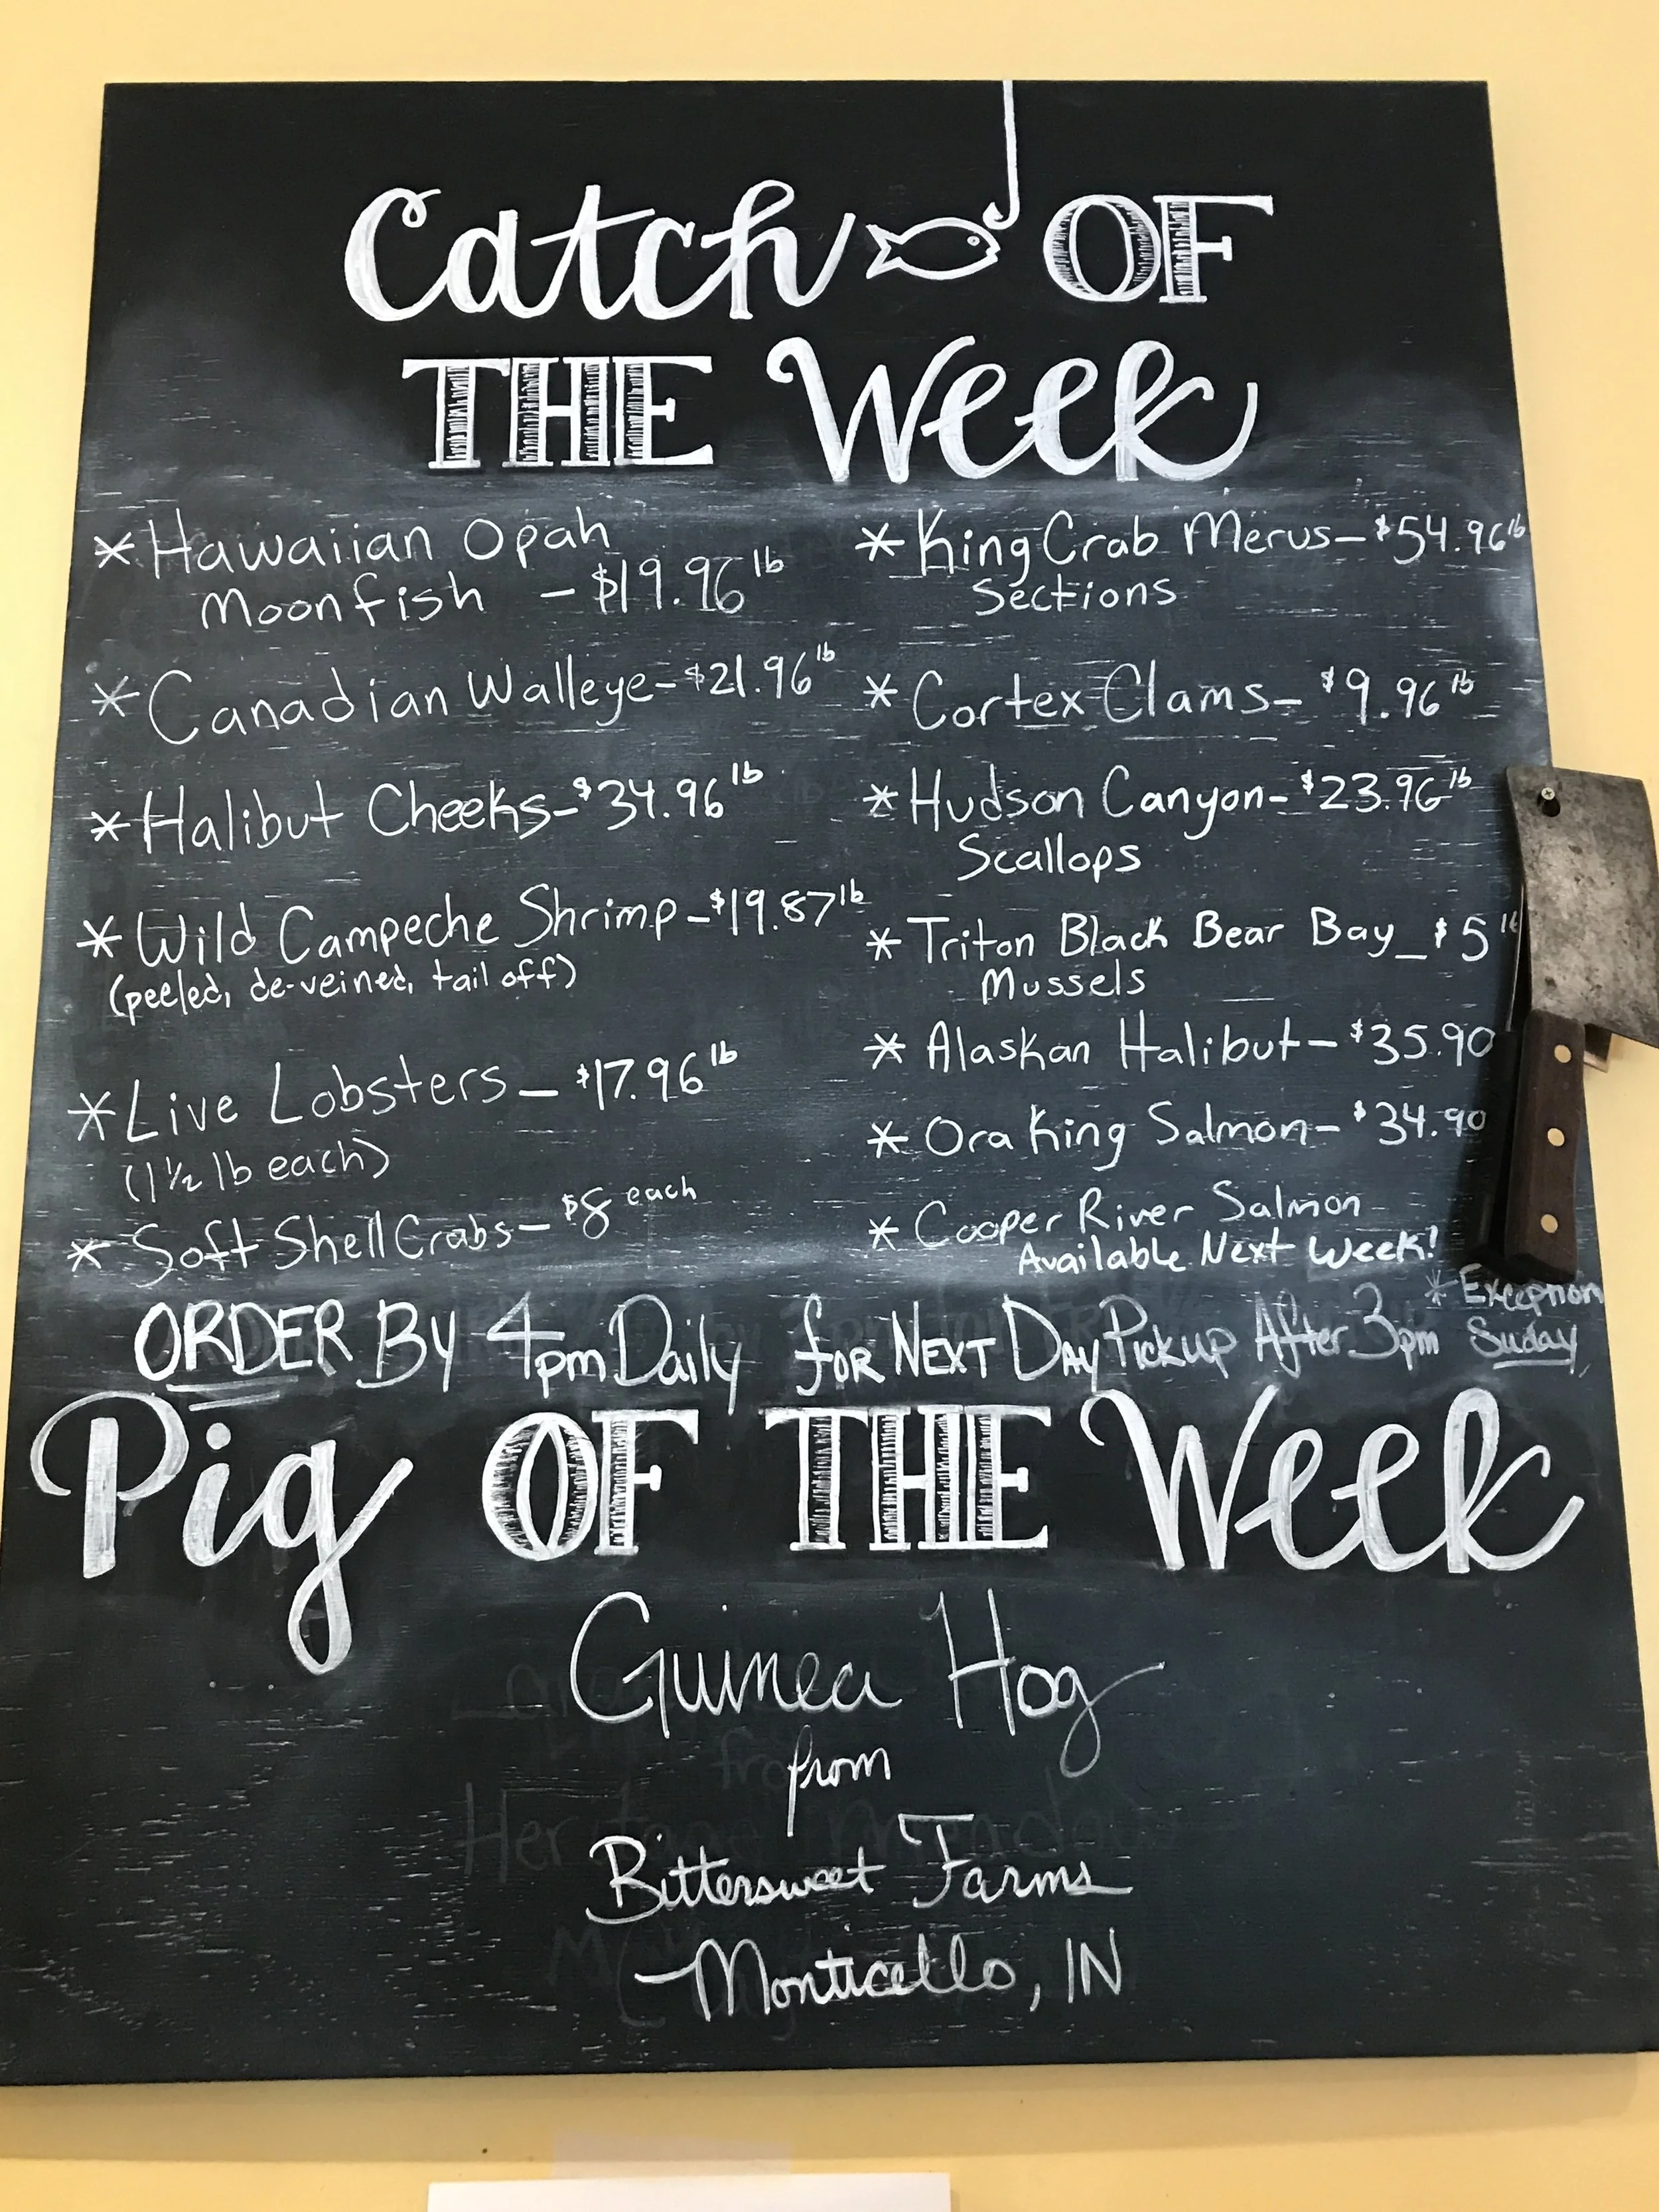 Catch OF
THE Week
* Hawaiian Opah
Moonfish - $19.96 lb
* Canadian Walleye - $21.96 lb
* Halibut Cheeks - $34.96 lb
* Wild Campeche Shrimp - $19.87 lb
(peeled, de-veined, tail off)
* Live Lobsters - $17.96 lb
(1 1/2 lb each)
* Soft Shell Crabs - $8 each
* King Crab Merus - $54.96 lb
Sections
* Cortex Clams - $9.96 lb
* Hudson Canyon - $23.96 lb
Scallops
* Triton Black Bear Bay - $5
Mussels
* Alaskan Halibut - $35.90
* Ora King Salmon - $34.90
* Cooper River Salmon
Available Next Week!
* Exception
ORDER By 4pm Daily for NEXT DAY Pickup After 3pm Suday
Pig OF THE Week
Guinea Hog
from
Bittersweet Farms
Monticello, IN